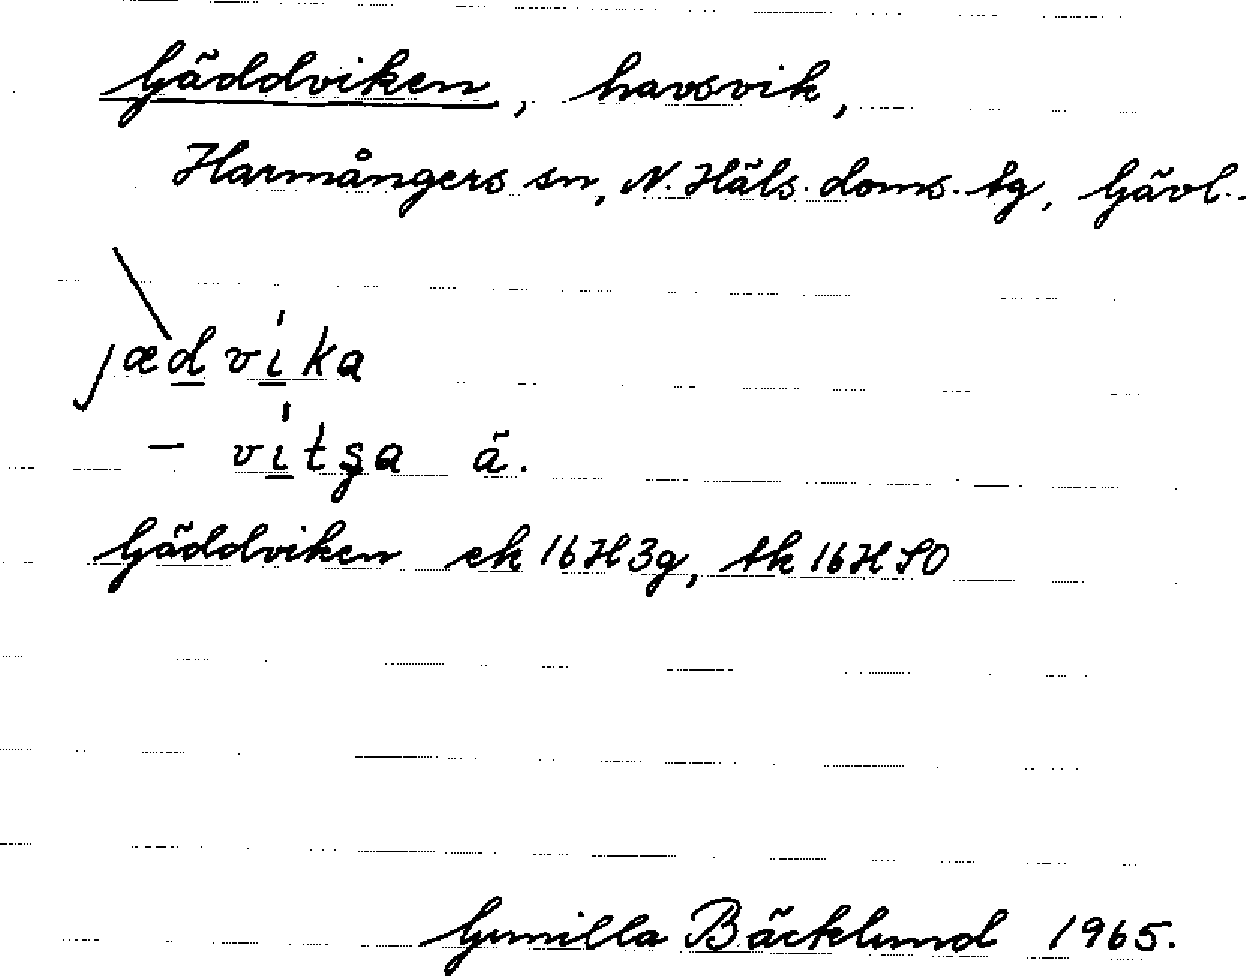 Gäddviken, havsvik,
Harmångers sn, N. Häls. doms. tg, Gävl.
jædvika
– vitʂa ä.
Gäddviken ek 16H3g, tk 16H SO
Gunilla Bäcklund 1965.